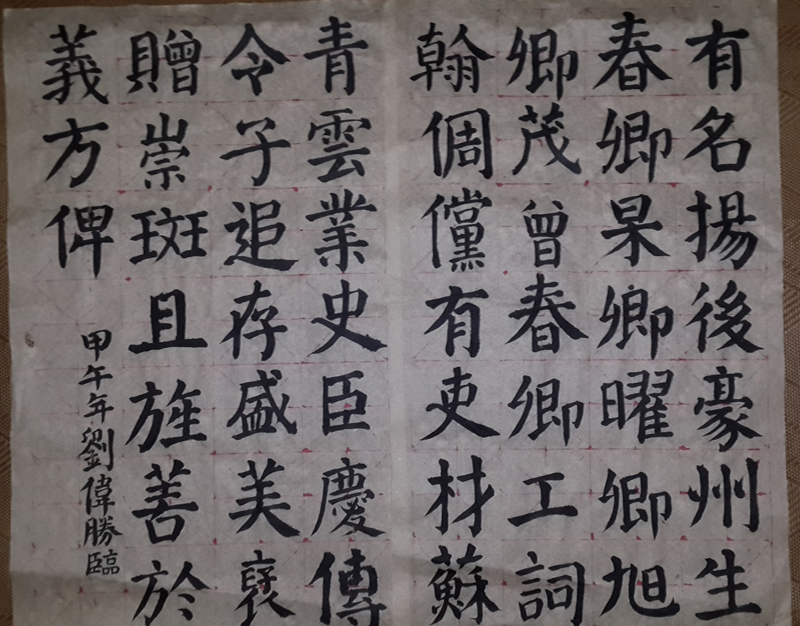 有名揚後豪州生
春卿杲卿曜卿旭
卿茂曾春卿工詞
翰倜儻有吏材蘇
青雲業史臣慶傳
令子追存盛美褒
贈崇斑且旌善於
義方俾
甲午年劉偉勝臨